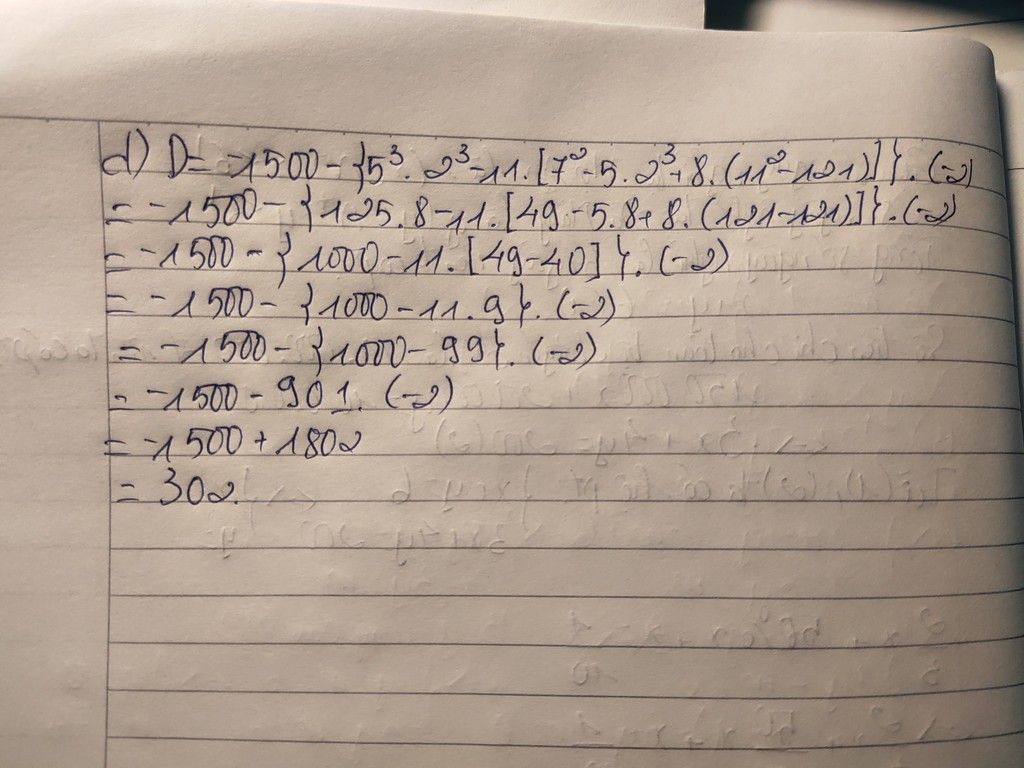 d) D = -1500 - {5³. 2³ - 11. [7² - 5. 2³ + 8. (11² - 121)]}. (-2)
= -1500 - {125. 8 - 11. [49 - 5. 8 + 8. (121 - 121)]}. (-2)
= -1500 - {1000 - 11. [49 - 40]}. (-2)
= -1500 - {1000 - 11. 9}. (-2)
= -1500 - {1000 - 99}. (-2)
= -1500 - 901. (-2)
= -1500 + 1802
= 302.